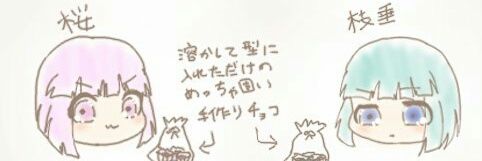 桜
枝垂
溶かして型に
入れただけの
めっちゃ固い
手作りチョコ